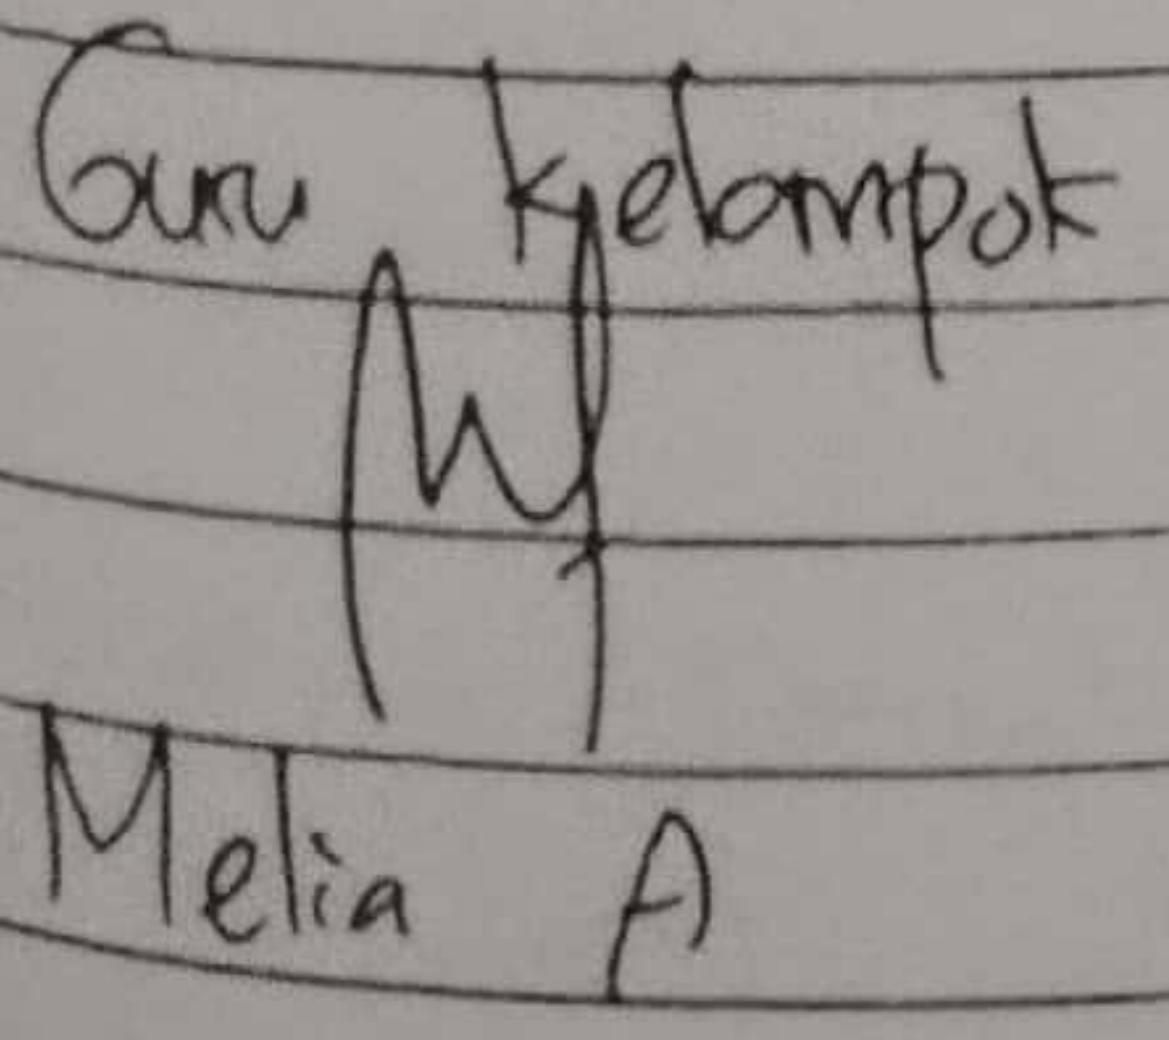 Guru Kelompok
Melia A